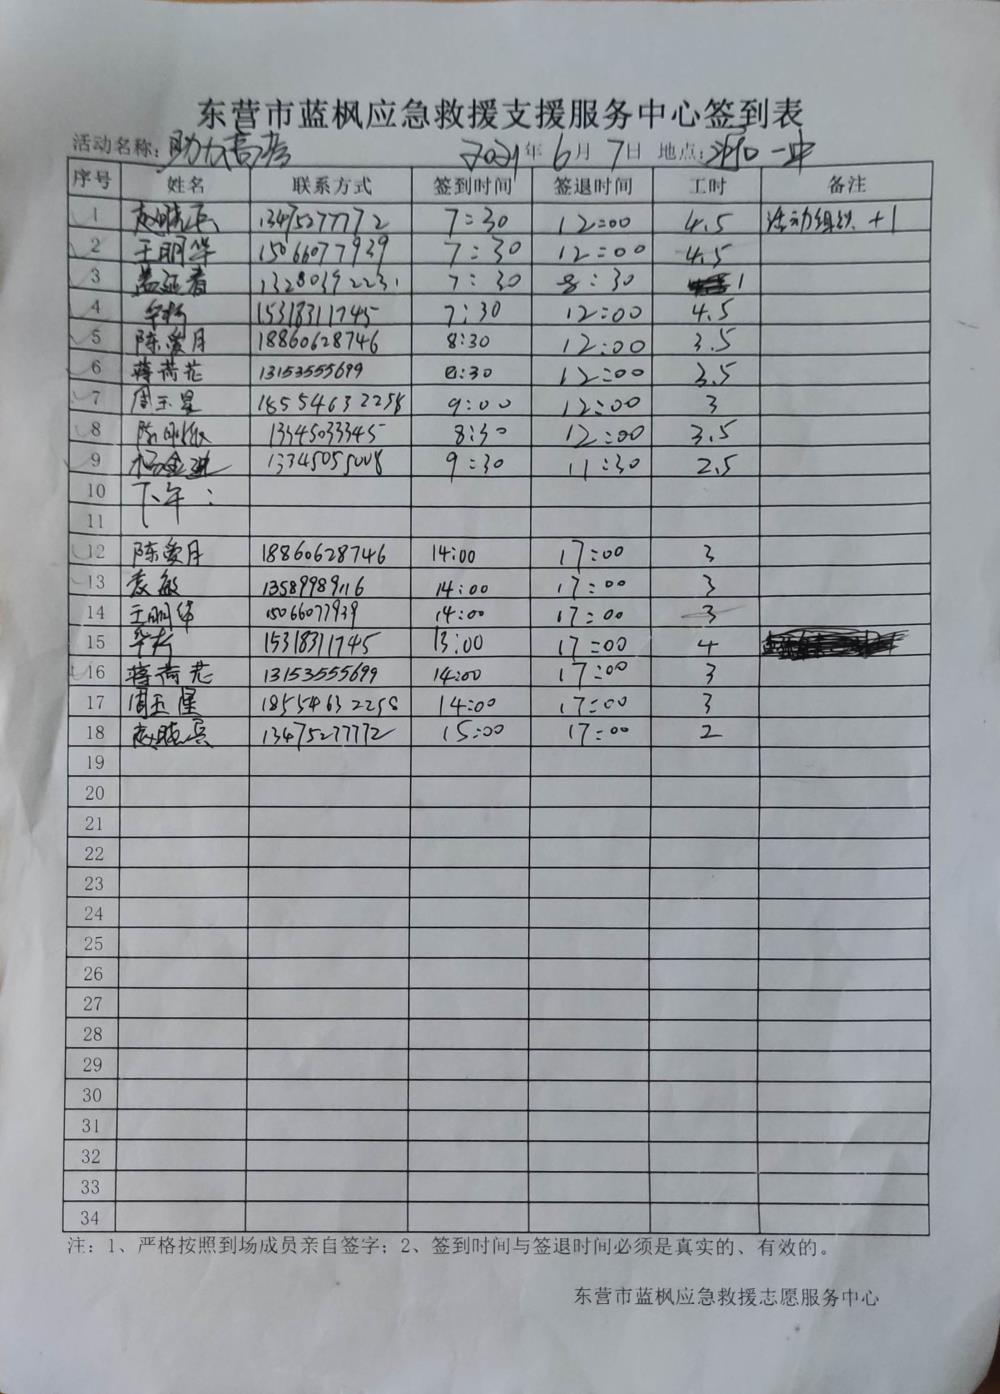 东营市蓝枫应急救援支援服务中心签到表
活动名称: 助力高考 2021年 6月 7日 地点: 河口一中
序号 姓名 联系方式 签到时间 签退时间 工时 备注
1 13475277772 7:30 12:00 4.5 活动组织 +1
2 王明华 15066077939 7:30 12:00 4.5
3 盖延春 13280392231 7:30 8:30 1
4 华杉 15318311745 7:30 12:00 4.5
5 陈爱月 18860628746 8:30 12:00 3.5
6 蒋荷花 13153555699 8:30 12:00 3.5
7 周玉星 18554632258 9:00 12:00 3
8 陈 13345033345 8:30 12:00 3.5
9 杨金 13345055008 9:30 11:30 2.5
10 下午:
11
12 陈爱月 18860628746 14:00 17:00 3
13 袁敏 13589989116 14:00 17:00 3
14 王明华 15066077939 14:00 17:00 3
15 华杉 15318311745 13:00 17:00 4
16 蒋荷花 13153555699 14:00 17:00 3
17 周玉星 18554632258 14:00 17:00 3
18 13475277772 15:00 17:00 2
19
20
21
22
23
24
25
26
27
28
29
30
31
32
33
34
注: 1、严格按照到场成员亲自签字; 2、签到时间与签退时间必须是真实的、有效的。
东营市蓝枫应急救援志愿服务中心